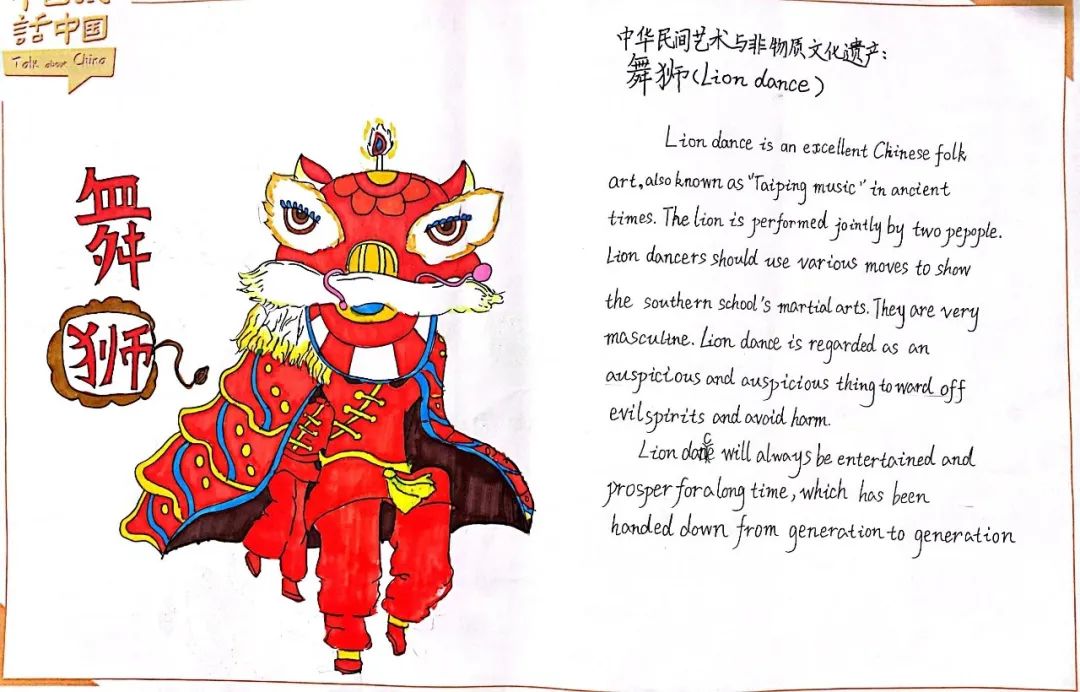 話中国
Talk about China
舞
狮
中华民间艺术与非物质文化遗产:
舞狮(Lion dance)
Lion dance is an excellent Chinese folk
art, also known as "Taiping music" in ancient
times. The lion is performed jointly by two pepople.
Lion dancers should use various moves to show
the southern school's martial arts. They are very
masculine. Lion dance is regarded as an
auspicious and auspicious thing to ward off
evil spirits and avoid harm.
Lion dance will always be entertained and
prosper for a long time, which has been
handed down from generation to generation